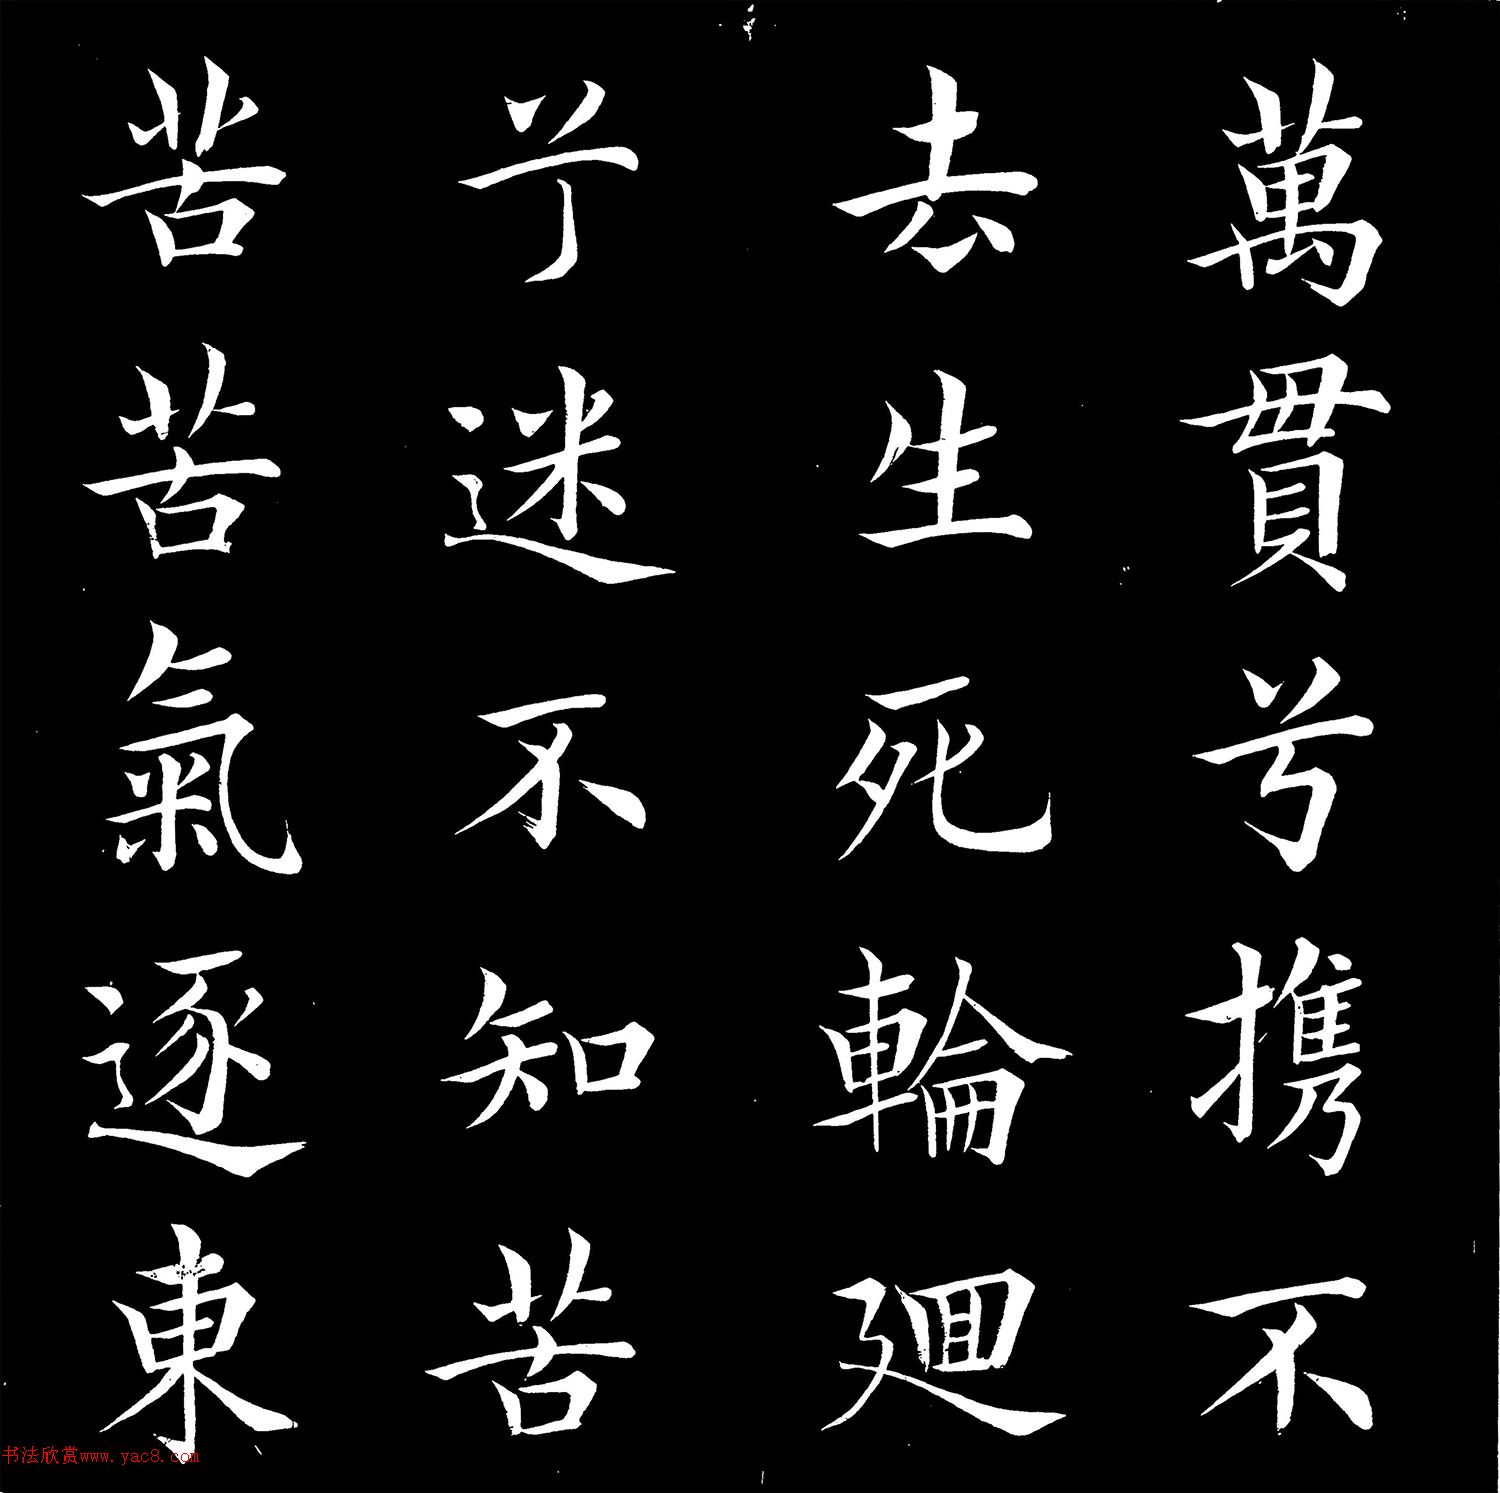 萬貫兮携不
去生死輪廻
兮迷不知苦
苦苦氣逐東
书法欣赏www.yac8.com